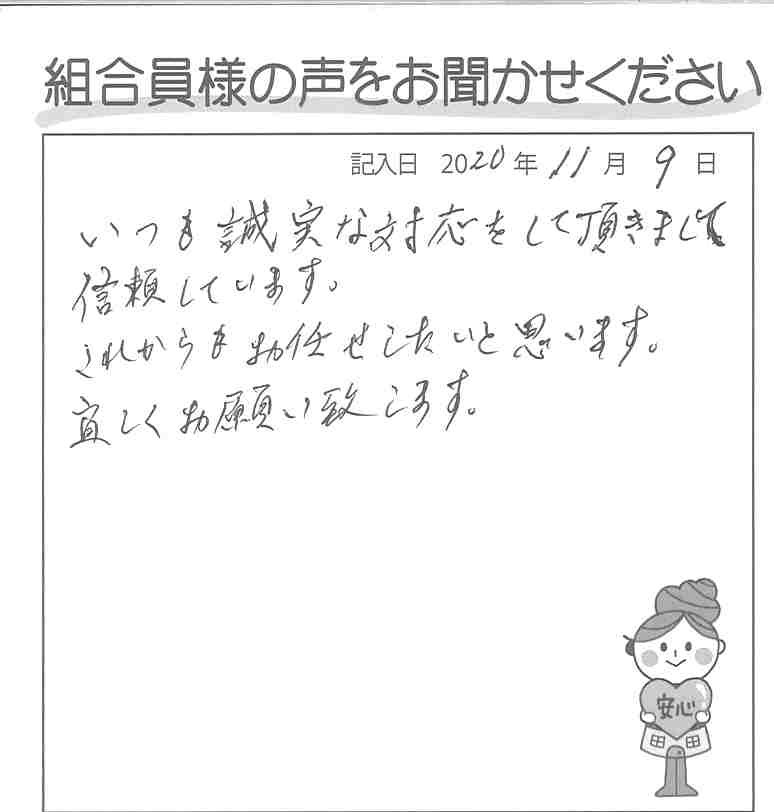 組合員様の声をお聞かせください
記入日 2020年 11月 9日
いつも誠実な対応をして頂きまして
信頼しています。
これからもお任せしたいと思います。
宜しくお願い致します。
安心